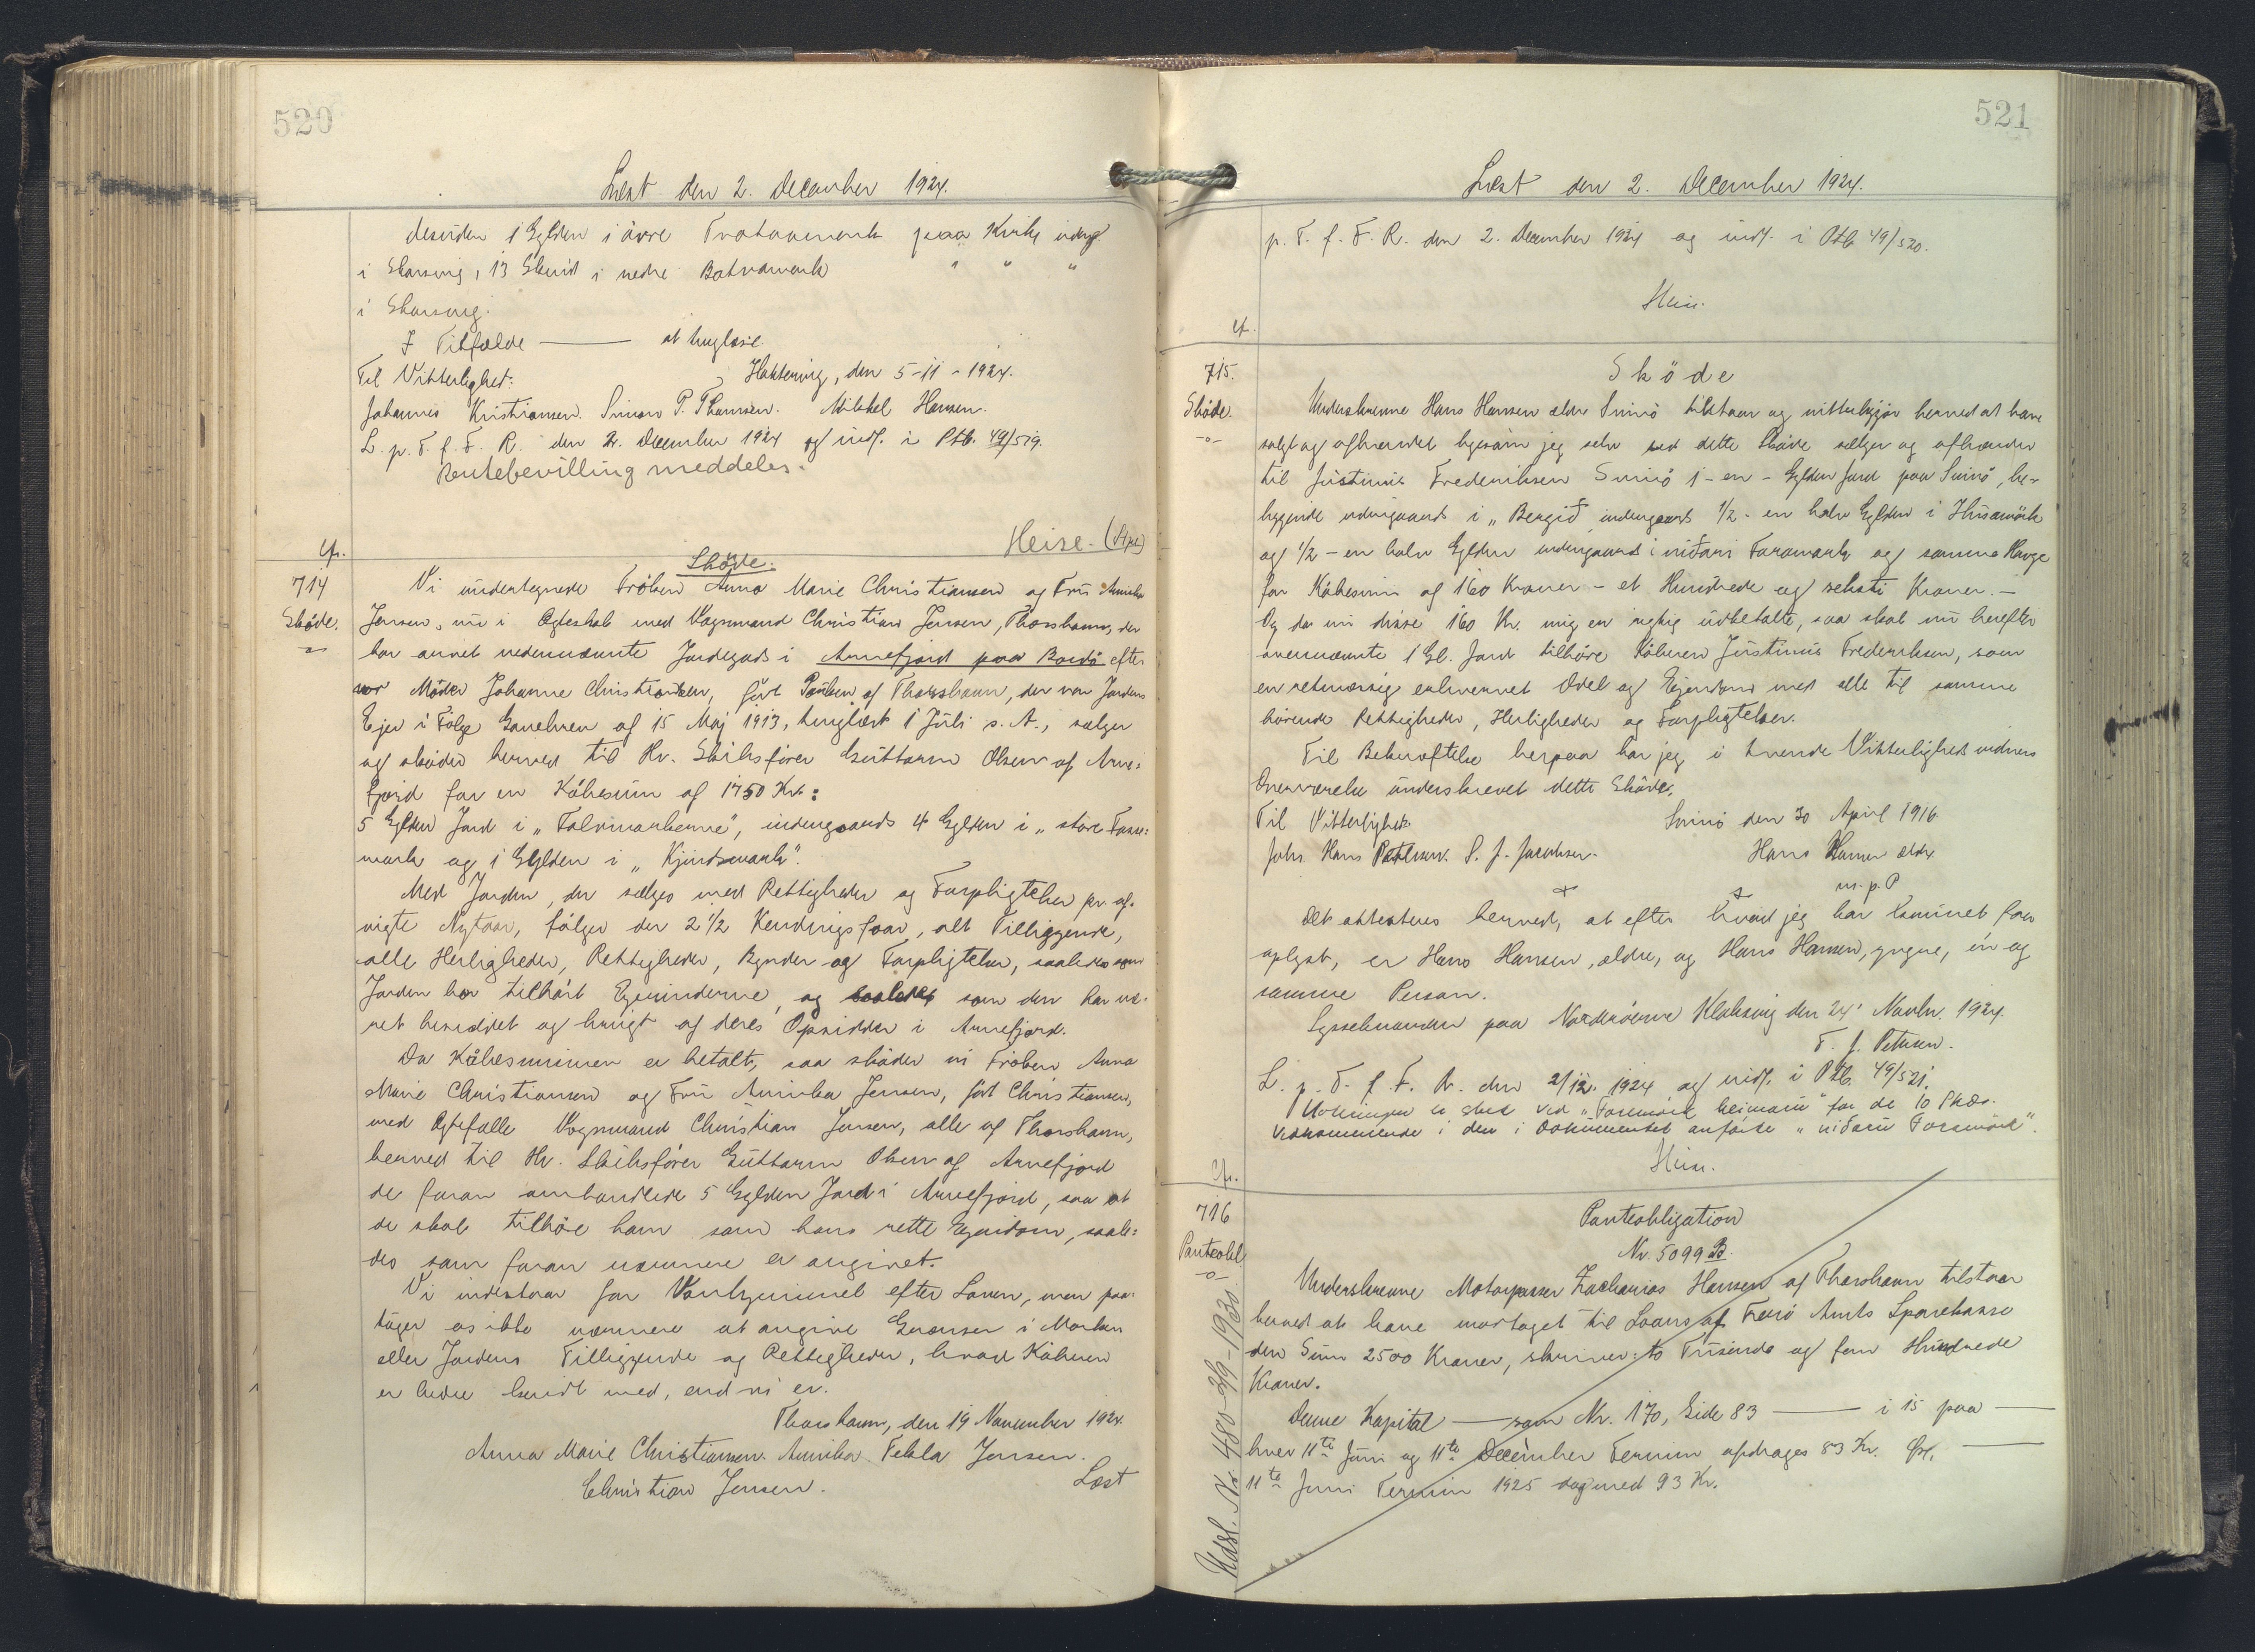 520
Læst den 2. December 1924.
desuden 1 Gylden i övre paa
i 13 Skind i nedre " " "
i
I Tilfælde —— at tinglæse
Til Vitterlighed: den 5-11-1924.
Johannes Kristiansen. Simon P. Thomsen. Mikkel Hansen.
L. p. T. f. F. R. den 2. December 1924 og indf. i Ptb. 49/519.
Rentebevilling meddeles.
Heise. (Stpl)
Cfr.
714
Skøde.
Skøde.
Vi undertegnede Fröken Anna Marie Christiansen og Fru Annika
Jensen, nu i Ægteskab med Vognmand Christian Jensen, Thorshavn, der
har arvet nedennævnte Jordegods i Arnefjord paa Bordö efter
vor Moder Johanne Christiansen, født Poulsen af Thorshavn, der var Jordens
Ejer i Følge Gavebrev af 15 Maj 1913, tinglæst 1 Juli s. A., sælger
og skøder herved til Hr. Skibsfører Guttorm Olsen af Arne=
fjord for en Købesum af 1750 Kr.:
5 Gylden Jord i "Tolvmarkerne", indengaards 4 Gylden i "store
mark og 1 Gylden i "Kjindsmark".
Med Jorden, der sælges med Rettigheder og Forpligtelser pr. af-
vigte Nytaar, følger der 2 1/2 Kendingsfaar, alt Tilliggende,
alle Herligheder, Rettigheder, Byrder og Forpligtelser, saaledes som
Jorden har tilhørt Ejerinderne, og saaledes som den har væ-
ret besiddet og brugt af deres Opsidder i Arnefjord.
Da Købesummen er betalt, saa skøder vi Frøken Anna
Marie Christiansen og Fru Annika Jensen, født Christiansen,
med Ægtefælle Vognmand Christian Jensen, alle af Thorshavn,
herved til Hr. Skibsfører Guttorm Olsen af Arnefjord
de foran omhandlede 5 Gylden Jord i Arnefjord, saa at
de skal tilhøre ham som hans rette Ejendom, saale=
des som foran nærmere er angivet.
Vi indestaar for Vanhjemmel efter Loven, men paa-
tager os ikke nærmere at angive Grænser i Marken
eller Jordens Tilliggende og Rettigheder, hvad Køberen
er bedre kendt med, end vi er.
Thorshavn, den 19 November 1924.
Anna Marie Christiansen. Annika Tekla Jensen.
Christian Jensen.
Læst
521
Læst den 2. December 1924.
p. T. f. F. R. den 2. December 1924 og indf. i Ptb 49/520.
Heise.
Cf.
715.
Skøde.
-o-
Skøde
Underskrevne Hans Hansen ældr Svinö tilstaar og vitterligjör herved at have
solgt og afhændet ligesom jeg selv ved dette Skøde sælger og afhænder
til Justinus Frederiksen Svinö 1 - en - Gylden Jord paa Svinö, be-
liggende udengaards i "Bergið indengaards 1/2 - en halv Gylden i Húsamörk
og 1/2 - en halv Gylden indengaards i niðari Foramark og samme Hauge
for Købesum af 160 Kroner - et Hundrede og seksti Kroner. -
Og da nu disse 160 Kr. mig er rigtig udbetalte, saa skal nu herefter
ovennævnte 1 Gl. Jord tilhøre Køberen Justinus Frederiksen, som
en retmæssig erhvervet Odel og Ejendom med alle til samme
hørende Rettigheder, Herligheder og Forpligtelser.
Til Bekræftelse herpaa har jeg i tvende Vitterligheds vidners
Overværelse underskrevet dette Skøde.
Til Vitterlighed: Svinö den 30 April 1916
Johs. Hans Petersen. S. J. Jacobsen. Hans Hansen ældr.
m. p. P
Det attesteres herved, at efter hvad jeg har kunnet faa
oplyst, er Hans Hansen, ældre, og Hans Hansen, yngre, én og
samme Person.
Sysselmanden paa Norderöerne Klaksvig den 24' Novbr. 1924.
T. J. Petersen.
L. p. T. f. F. R. den 2/12. 1924 og indf. i Ptb. 49/521.
Noteringen er sket ved "Foramörk heimaru" for de 10 Skd.
vedkommende i den i Dokumentet anførte "niðaru Foramörk".
Heise.
Cfr.
716
Panteobl.
-o-
Panteobligation
Nr. 5099 B.
Underskrevne Motorpasser Zacharias Hansen af Thorshavn tilstaar
herved at have modtaget til Laans af Færö Amts Sparekasse
den Sum 2500 Kroner, skriver: to Tusinde og fem Hundrede
Kroner.
Denne Kapital — som Nr. 170, Side 83 —— i 15 paa ——
hver 11te Juni og 11te December Termin afdrages 83 Kr. ——
11te Juni Termin 1925 dog med 93 Kr.
Udsl. Nr 480-3/9-1930.